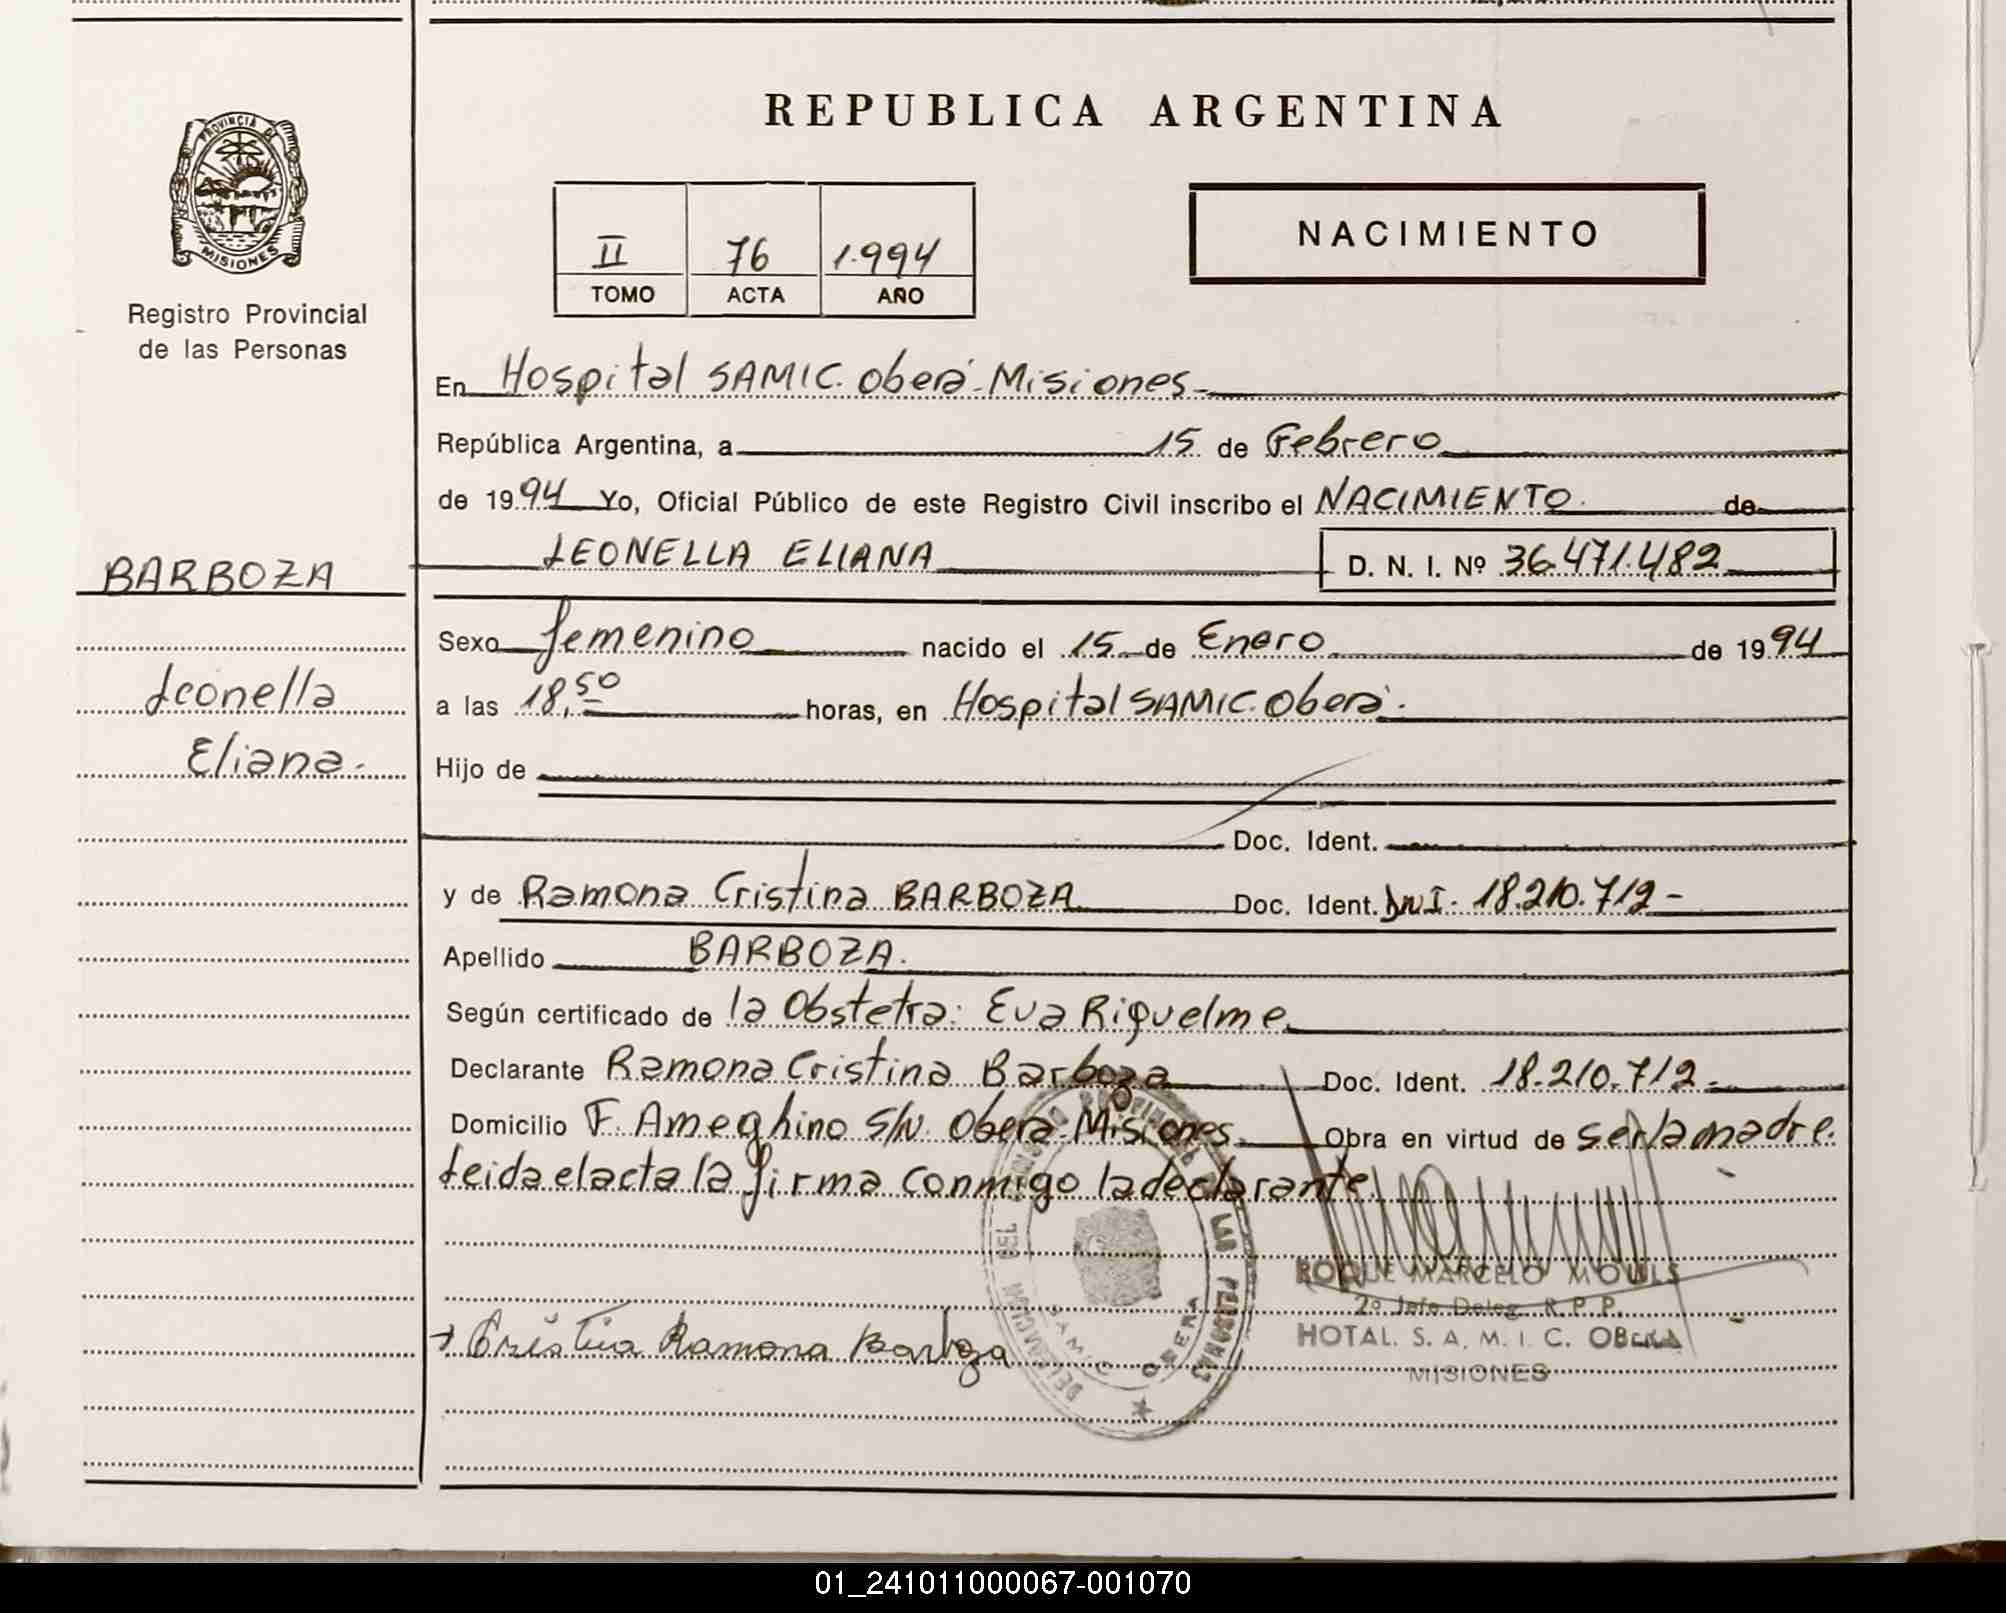 REPUBLICA ARGENTINA
PROVINCIA DE
MISIONES
Registro Provincial
de las Personas
II 76 1.994
TOMO ACTA AÑO
NACIMIENTO
En Hospital SAMIC. Oberá-Misiones-
República Argentina, a 15 de Febrero
de 1994 Yo, Oficial Público de este Registro Civil inscribo el NACIMIENTO. de
BARBOZA
LEONELLA ELIANA D. N. I. Nº 36.471.482
Sexo femenino nacido el 15 de Enero de 1994
Leonella
Eliana.
a las 18,50 horas, en Hospital SAMIC. Oberá.
Hijo de
Doc. Ident.
y de Ramona Cristina BARBOZA Doc. Ident. DNI. 18.210.712-
Apellido BARBOZA.
Según certificado de la Obstetra: Eva Riquelme
Declarante Ramona Cristina Barboza Doc. Ident. 18.210.712.-
Domicilio F. Ameghino S/N. Oberá-Misiones Obra en virtud de ser la madre.
Leida el acta la firma conmigo la declarante
DELEGACION REGISTRO PROVINCIAL DE LAS PERSONAS
SAMIC OBERA
ROQUE MARCELO MOULS
2º Jefe Deleg. R.P.P.
HOTAL. S. A. M. I. C. OBERA
MISIONES
Cristina Ramona Barboza
01_241011000067-001070